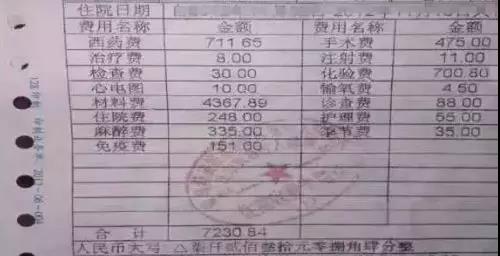 住院日期
费用名称 金额 费用名称 金额
西药费 711.65 手术费 475.00
治疗费 8.00 注射费 11.00
检查费 30.00 化验费 700.80
心电图 10.00 输氧费 4.50
材料费 4367.89 诊查费 88.00
住院费 248.00 护理费 55.00
麻醉费 335.00 季节费 35.00
免疫费 151.00
合计 7230.84
人民币大写 △柒仟贰佰叁拾元零捌角肆分整